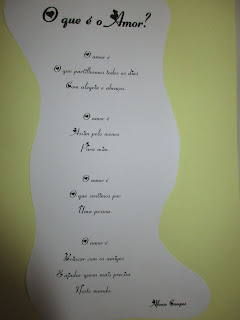 O que é o Amor?
O amor é
O que partilhamos todos os dias
Com alegria e abraços.
O amor é
Assim pelo menos
Para mim.
O amor é
O que sentimos por
Uma pessoa.
O amor é
Brincar com os amigos
E ajudar quem mais precisa
Neste mundo.
Afonso Campos